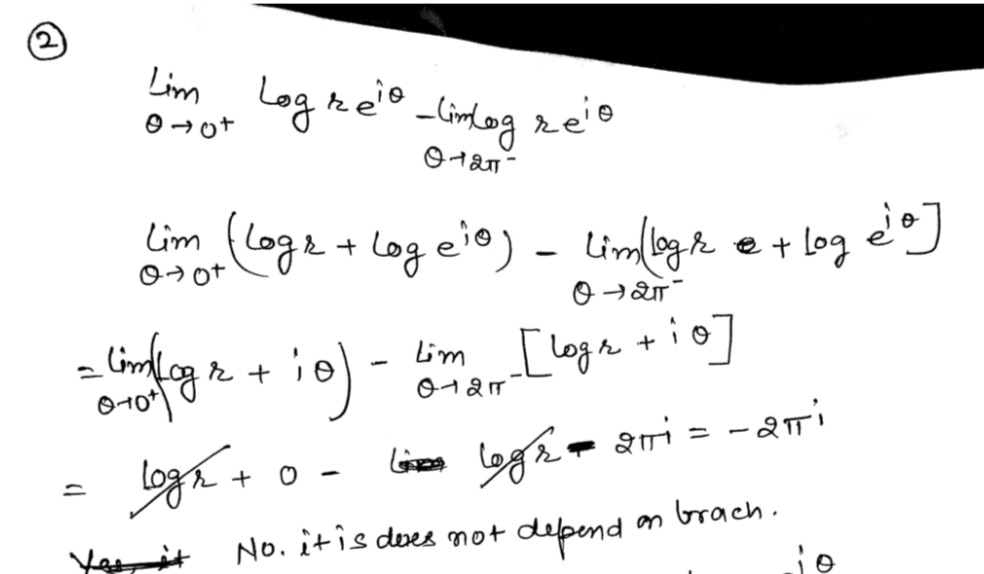 ②
Lim θ→0+ Log re^iθ - Lim θ→2π- log re^iθ
Lim θ→0+ (Log r + Log e^iθ) - Lim θ→2π- (log r + log e^iθ]
= Lim θ→0+ (Log r + iθ) - Lim θ→2π- [log r + iθ]
= log r + 0 - log r - 2πi = -2πi
No. it is does not depend on brach.
iθ